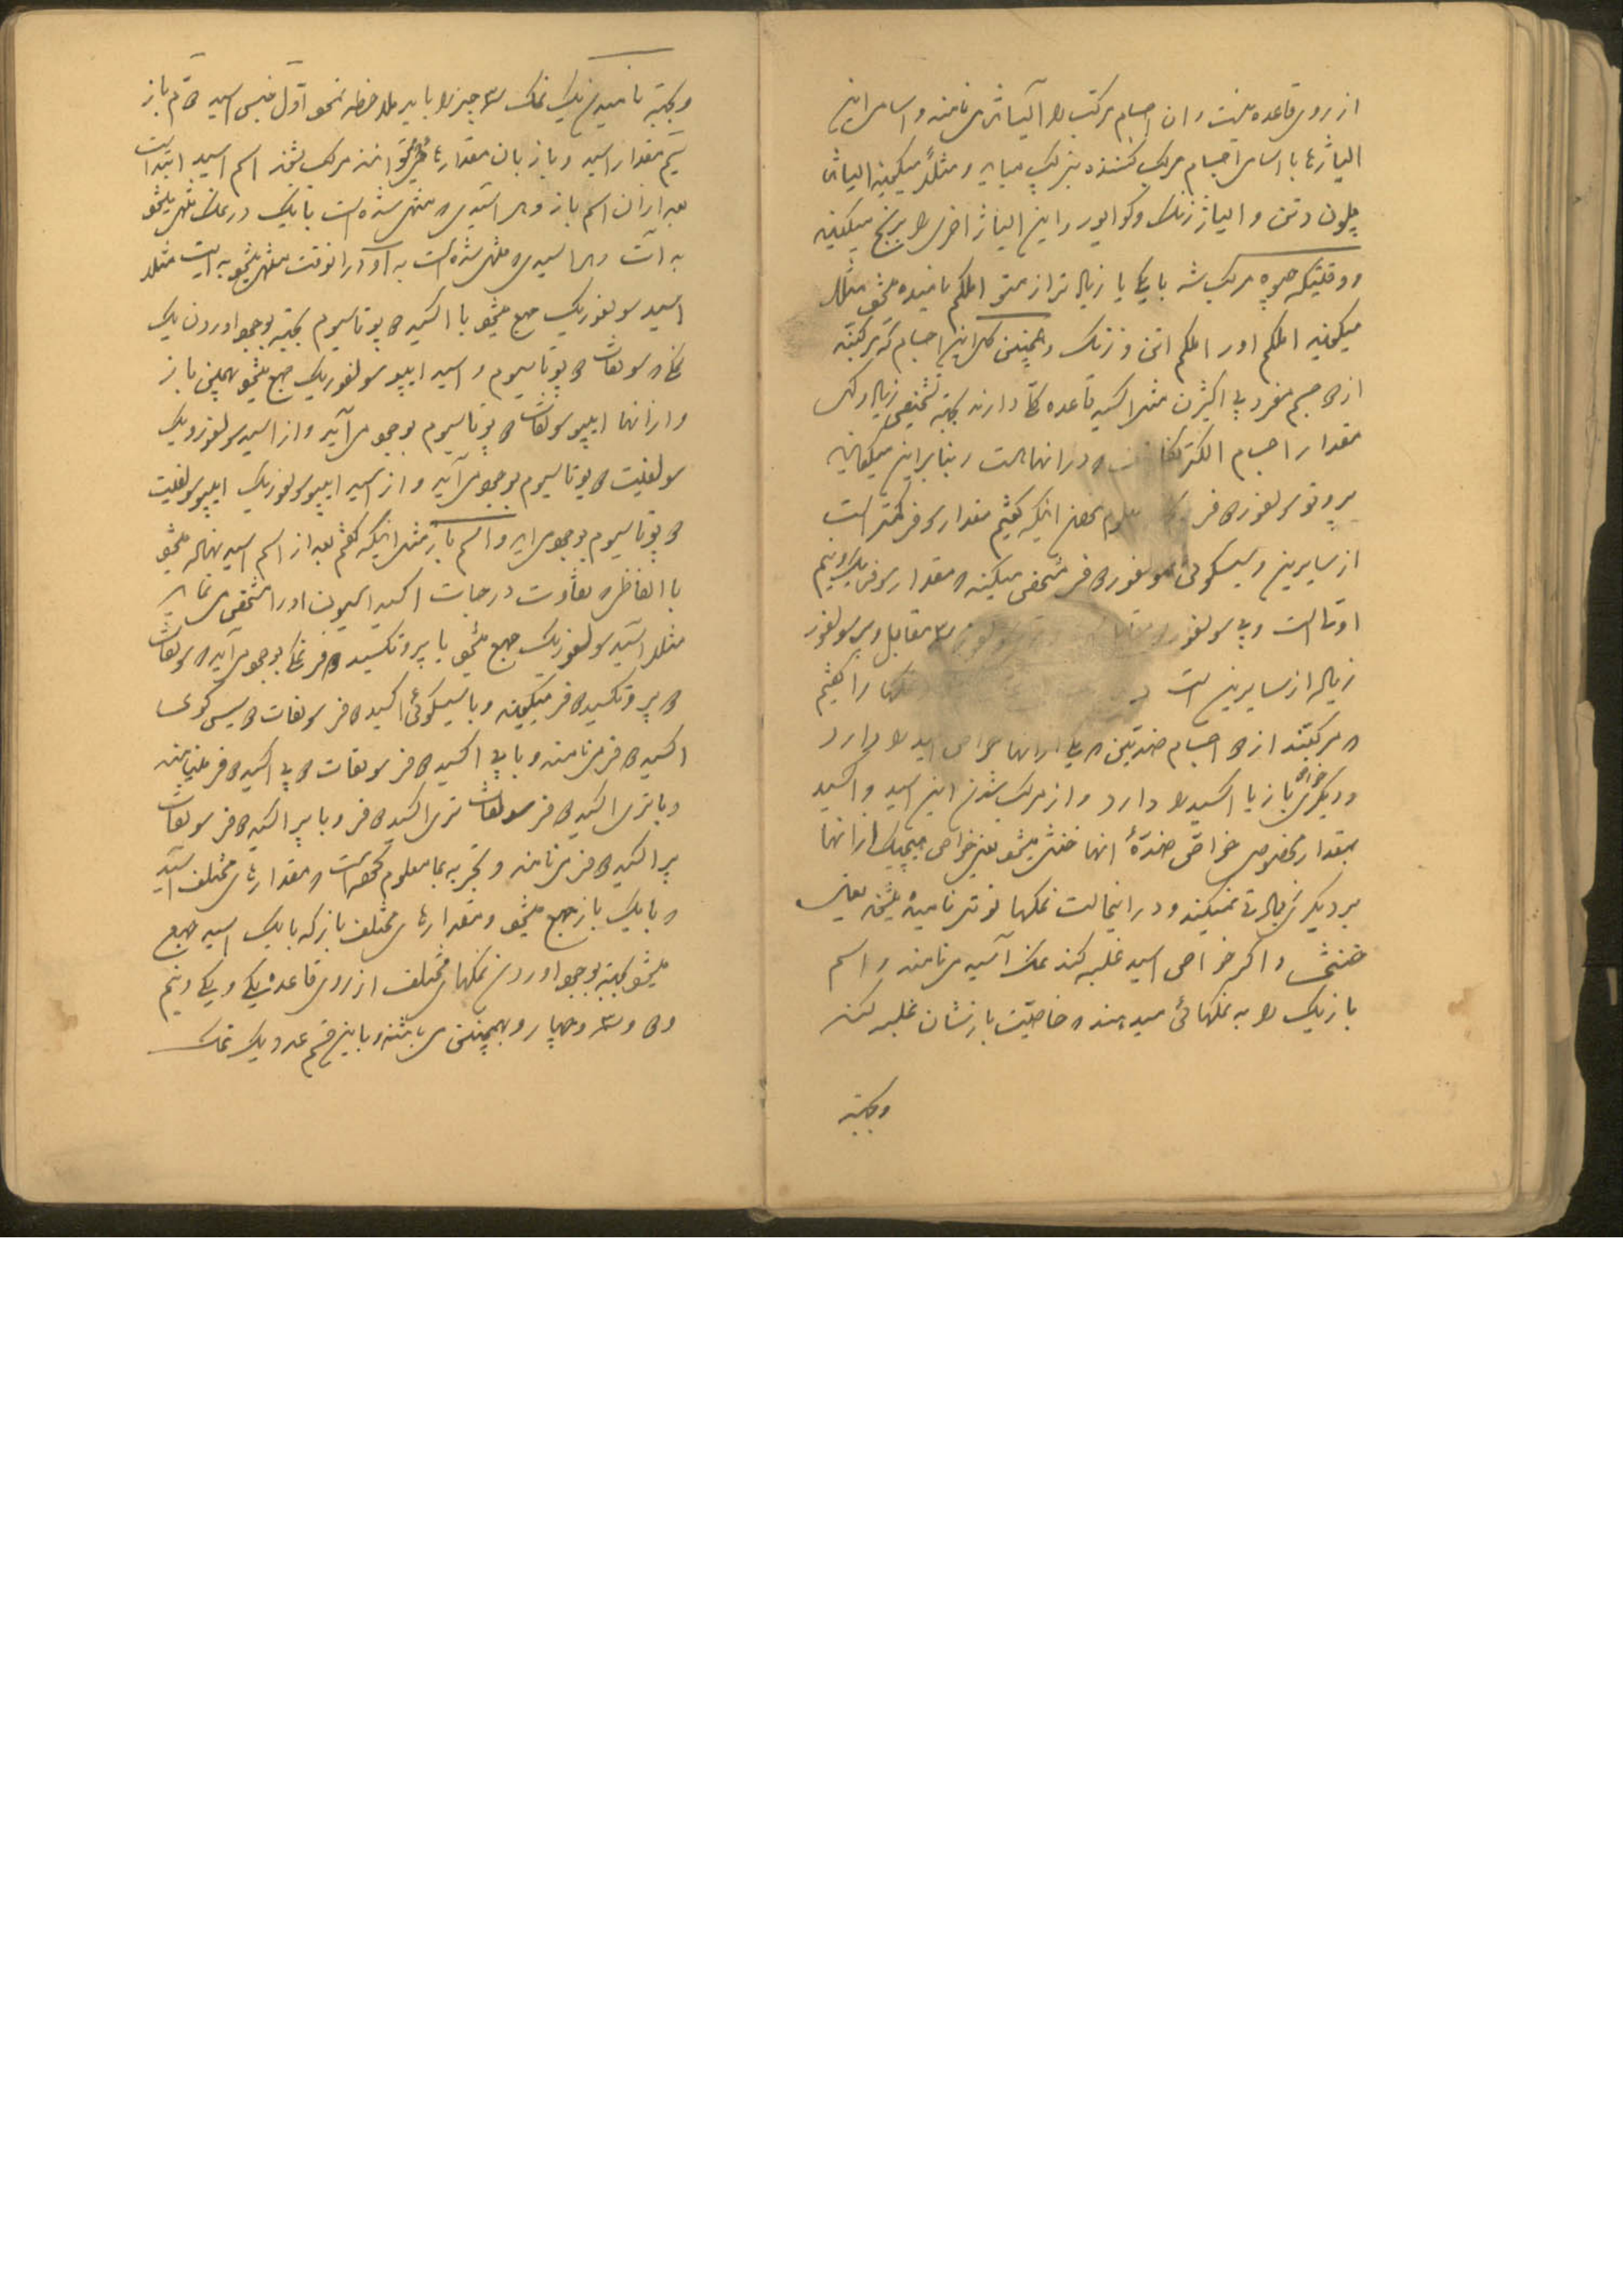 از روی قاعده نیست و ان اجسام مرکب را آلیاژ می نامند و اسامی این
الیاژها با اسامی اجسام مرکب کننده بترکیب میاید و مثلاً میگویند الیاژ
پلون و تن و الیاژ زنک و کوایور و این الیاژ اخری را برنج میگویند
و وقتیکه جیوه مرکب شد با یک یا زیاد تر از متو املگم نامیده میشود مثلا
میگویند املگم اور املگم اتن و زنک و همچنین کل این اجسام که مرکبند
از دو جسم مفرد بی اکثیرن مثل اکسید قاعده کلی دارند بجهة تشخیص زیاد و کمی
مقدار اجسام الکتر که در انها است و بنابراین میگویند
پروتو سولفور دو فر معلوم اینکه گفتیم مقدار سوفر کمتر است
از سایرین و سیسکوئی سولفور دو فر مشخص میکند که مقدار سوفر یک و نیم
اوقا است و بی سولفور مقابل و پر سولفور
زیاد از سایرین است نمکها را گفتیم
که مرکبند از دو اجسام ضدیتین که یکی از انها خواص اسید را دارد
و دیگری خواص باز یا اکسید را دارد و از مرکب شدن این اسید و اکسید
بمقدار مخصوص خواص ضدهٔ انها خنثی میشود یعنی خواص هیچیک از انها
بر دیگری زیادتی نمیکند و در اینحالت نمکها نوتر نامیده میشوند یعنی
خنثی و اگر خواص اسید غلبه کند نمک آسید می نامند و اسم
بازیک را به نمکهائی میدهند که خاصیت بازشان غلبه کند
و بجهة
و بجهة نامیدن یک نمک سه چیز را باید ملاحظه نمود اول جنس اسید دوم باز
سیم مقدار اسید و باز بان مقدارها که میتوانند مرکب بشوند اسم اسید ابتدا است
بعد از ان اسم باز و هر اسیدی که منتهی شده است با یک در نمک منتهی میشود
به آت و هر اسیدی که منتهی شده است به او در انوقت منتهی میشود به ایت مثلا
اسید سولفوریک جمع میشود با اکسید دو پوتاسیوم بجهة بوجود اوردن یک
نمک که سولفات دو پوتاسیوم و اسید ایپو سولفوریک جمع میشود بهمچنین باز
و از انها ایپو سولفات دو پوتاسیوم بوجود می آید و از اسید سولفورو یک
سولفیت دو پوتاسیوم بوجود می آید و از اسید ایپو سولفوریک ایپو سولفیت
دو پوتاسیوم بوجود می اید و اسم باز مثل اینکه گفتم بعد از اسم اسید نهاده میشود
با الفاظی که تفاوت درجات اکسیداسیون او را مشخص می نماید
مثلا اسید سولفوریک جمع میشود با پروتکسید دو فر نمک بوجود می آید که سولفات
دو پروتکسید دو فر میگویند و با سیسکوئی اکسید دو فر سولفات دو سیسکوئی
اکسید دو فر می نامند و با بی اکسید دو فر سولفات دو بی اکسید دو فر مینامند
و با تری اکسید دو فر سولفات تری اکسید دو فر و با پر اکسید دو فر سولفات
پر اکسید دو فر می نامند و تجربه بما معلوم کرده است که مقدارهای مختلف اسید
که با یک باز جمع میشود و مقدارهای مختلف باز که با یک اسید جمع
میشود بجهة بوجود اوردن نمکهای مختلف از روی قاعده یک و یک و نیم
و دو و سه و چهار و بهمچنین می باشند و باین قسم عدد یک نمک